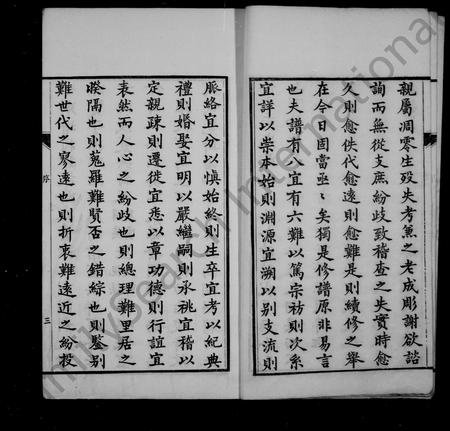 親屬凋零生歿失考兼之老成彫謝欲諮
詢而無從支庶紛歧致稽查之失實時愈
久則愈佚代愈遠則愈難是則續修之舉
在今固當亟亟矣獨是修譜原非易言
也夫譜有八宜有六難以篤宗祊則次系
宜詳以崇本始則淵源宜溯以別支流則
脈絡宜分以慎始終則生卒宜考以紀典
禮則婚娶宜明以嚴繼嗣則承祧宜稽以
定親疎則遷徙宜悉以章功德則行誼宜
表然而人心之紛歧也則總理難里居之
暌隔也則蒐羅難賢否之錯綜也則鑒別
難世代之寥遠也則折衷難遠近之紛投
序
三
FamilySearch International